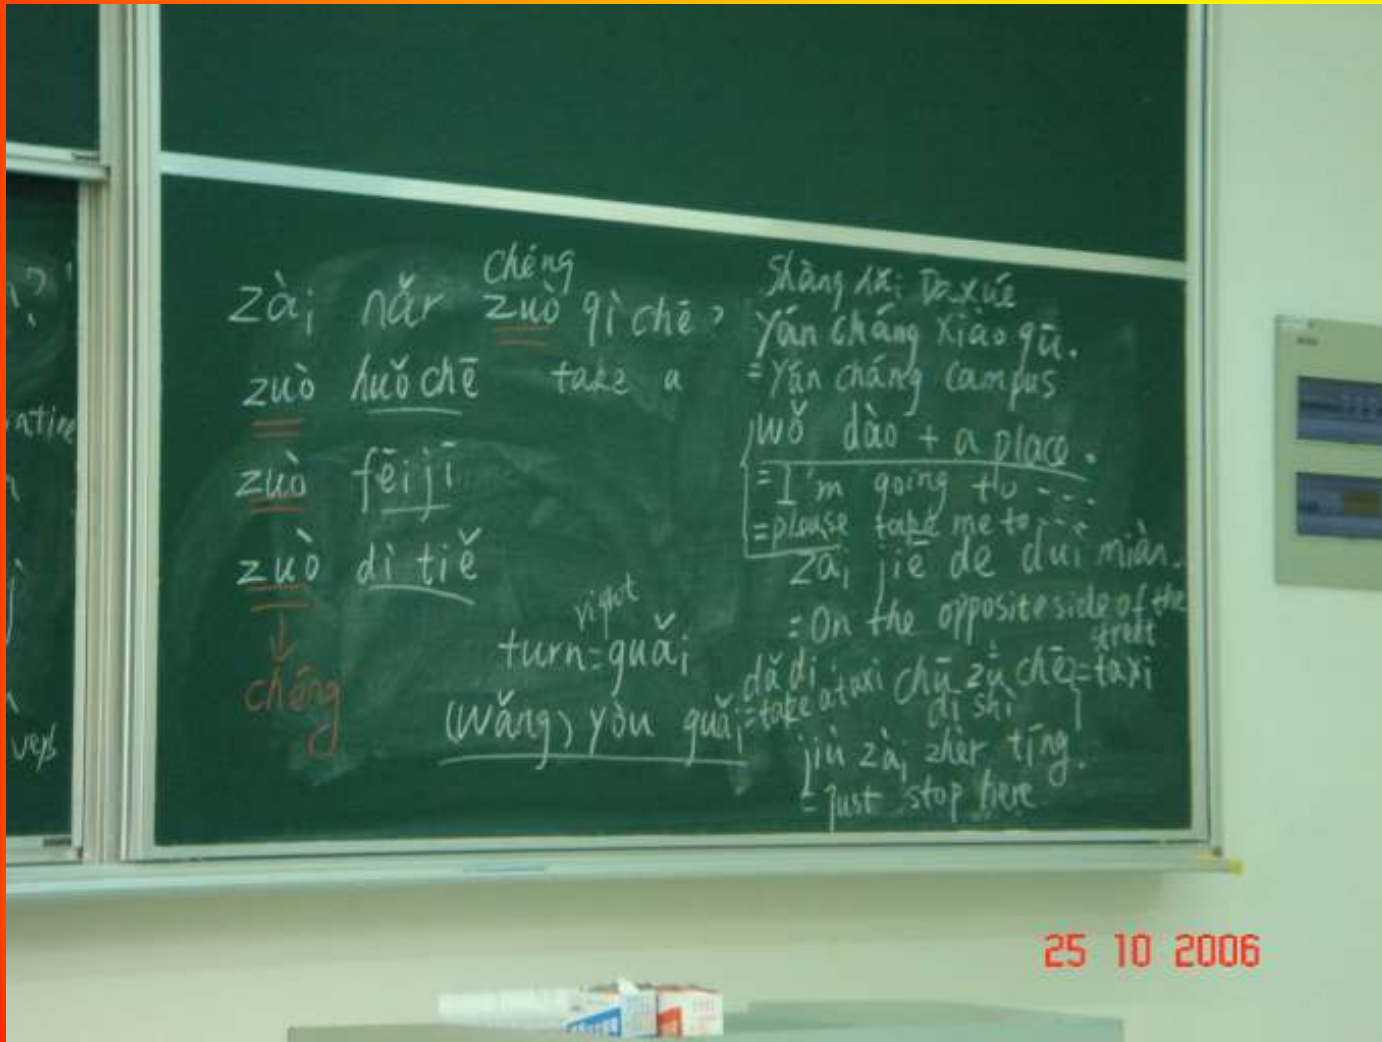 n?
ratine
verb
chéng
zài nǎr zuò qì chē?
zuò huǒ chē take a
zuò fēi jī
zuò dì tiě
chéng
right
turn=guǎi
(wǎng) yòu guǎi
Shàng hǎi Daxué
Yán cháng xiào qū.
=Yán cháng campus
wǒ dào + a place.
=I'm going to ....
=please take me to ....
zài jiē de duì miàn.
=On the opposite side of the
street
dǎ dī chū zū chē =taxi
=take a taxi dī shì
jiù zài zhèr tíng.
=just stop here
25 10 2006